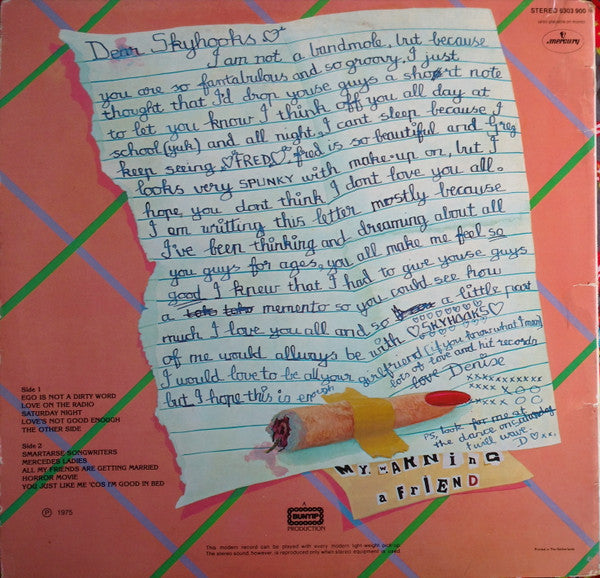 STEREO 6303 900
mercury
Dear Skyhooks
I am not a brandmole, but because
you are so fantabulous and so groovy, I just
thought that I'd drop youse guys a short note
to let you know I think off you all day at
school (yuk) and all night, I cant sleep because I
keep seeing FRED, fred is so beautiful and
looks very SPUNKY with make-up on, but I
hope you dont think I dont love you all.
I am writting this letter mostly because
I've been thinking and dreaming about all
you guys for ages, you all make me feel so
good I knew that I had to give youse guys
a momento so you could see how
much I love you all and so a little part
of me would allways be with SKYHOOKS
I would love to be all your girlfriend (if you know what I mean)
but I hope this is enough lots of love and hit records
love Denise
xxxxxxxxxx
P.S. look for me at
the dance on
I will wave.
D xx.
MY WARNING
A FRIEND
Side 1
EGO IS NOT A DIRTY WORD
LOVE ON THE RADIO
SATURDAY NIGHT
LOVE'S NOT GOOD ENOUGH
THE OTHER SIDE
Side 2
SMARTARSE SONGWRITERS
MERCEDES LADIES
ALL MY FRIENDS ARE GETTING MARRIED
HORROR MOVIE
YOU JUST LIKE ME 'COS I'M GOOD IN BED
Ⓟ 1975
A
BUNYIP
PRODUCTION
This modern record can be played with every modern light-weight pick-up.
The stereo sound, however, is reproduced only when stereo equipment is used.
Printed in The Netherlands